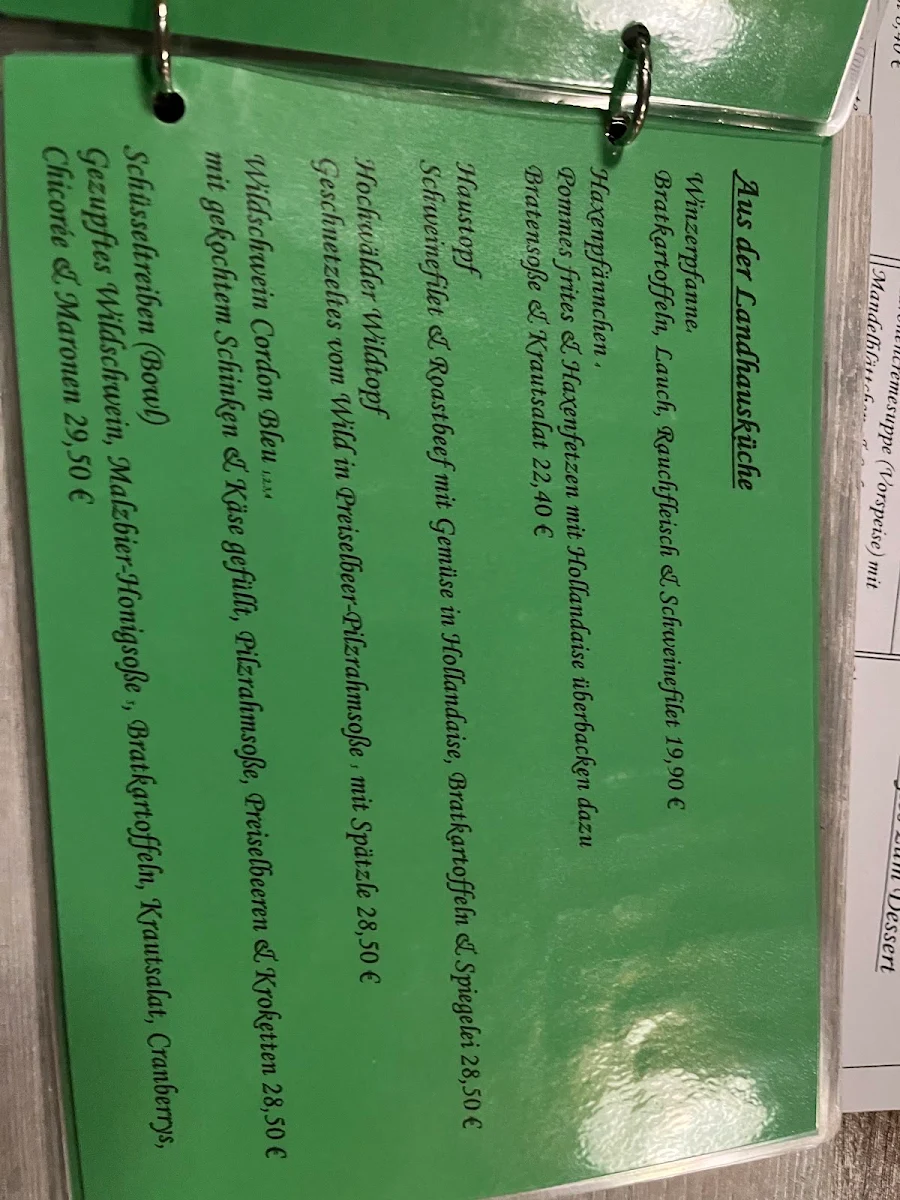 Aus der Landhausküche
Winzerpfanne
Bratkartoffeln, Lauch, Rauchfleisch & Schweinefilet 19,90 €
Haxenpfännchen
Pommes frites & Haxenfetzen mit Hollandaise überbacken dazu
Bratensoße & Krautsalat 22,40 €
Haustopf
Schweinefilet & Roastbeef mit Gemüse in Hollandaise, Bratkartoffeln & Spiegelei 28,50 €
Hochwälder Wildtopf
Geschnetzeltes vom Wild in Preiselbeer-Pilzrahmsoße, mit Spätzle 28,50 €
Wildschwein Cordon Bleu
mit gekochtem Schinken & Käse gefüllt, Pilzrahmsoße, Preiselbeeren & Kroketten 28,50 €
Schüsseltreiben (Bowl)
Gezupftes Wildschwein, Malzbier-Honigsoße, Bratkartoffeln, Krautsalat, Cranberrys,
Chicorée & Maronen 29,50 €
(Vorspeise) mit
zum Dessert